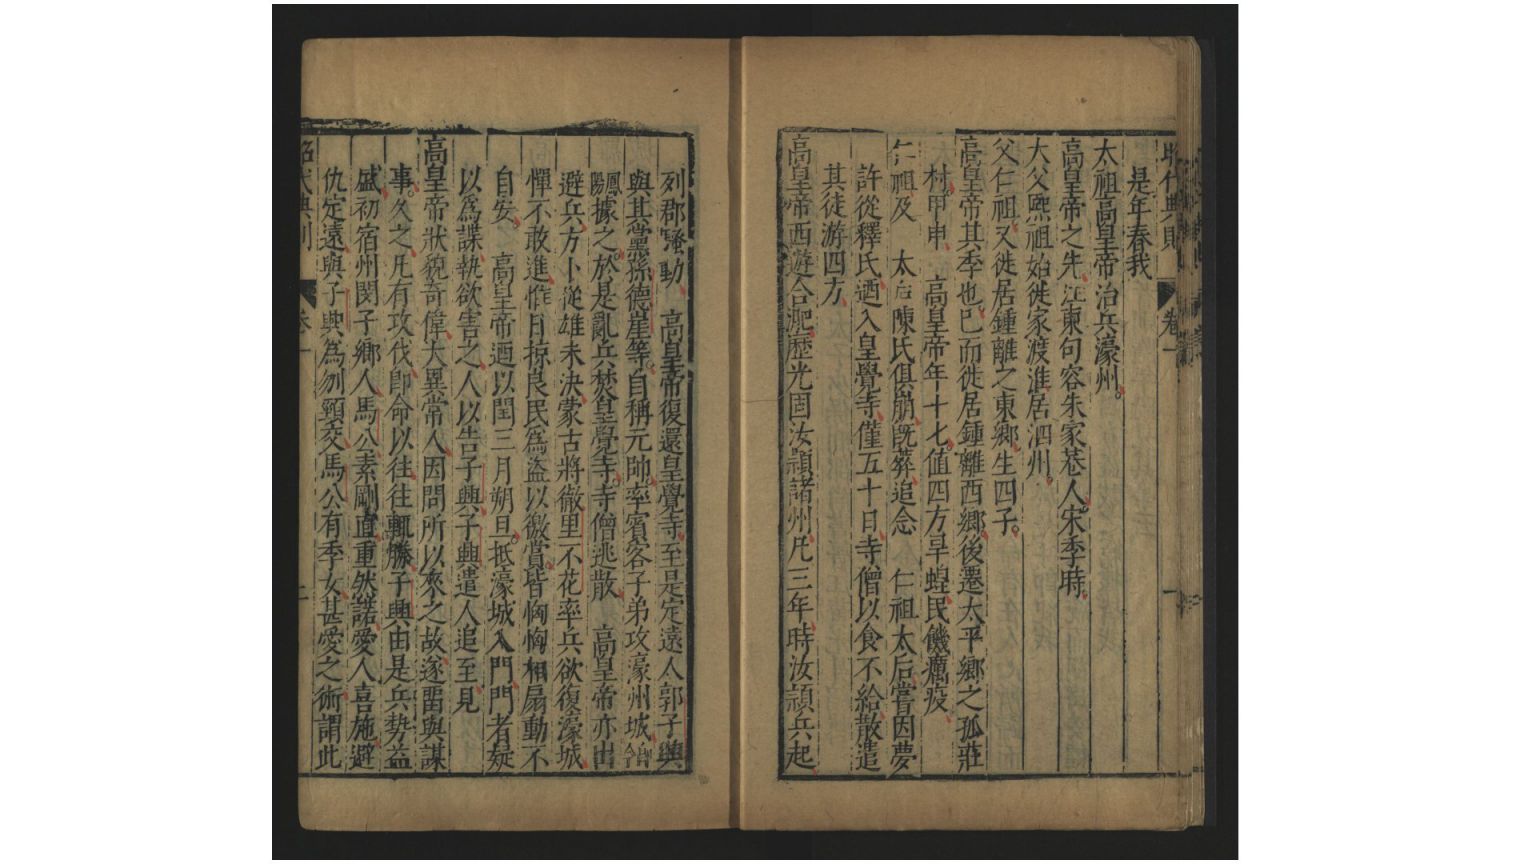 昭代典則 卷一 一
是年春我
太祖高皇帝治兵濠州。
高皇帝之先江東句容朱家巷人宋季時
大父熙祖始徙家渡淮居泗州
父仁祖又徙居鍾離之東鄉生四子。
高皇帝其季也已而徙居鍾離西鄉後遷太平鄉之孤莊
村甲申 高皇帝年十七值四方旱蝗民饑癘疫
仁祖及 太后陳氏俱崩旣葬追念 仁祖太后嘗因夢
許從釋氏迺入皇覺寺僅五十日寺僧以食不給散遣
其徒游四方
高皇帝西遊合淝歷光固汝潁諸州凡三年時汝潁兵起
列郡騷動 高皇帝復還皇覺寺至是定遠人郭子興
與其黨孫德崖等自稱元帥率賓客子弟攻濠州城
鳳陽據之於是亂兵焚皇覺寺寺僧逃散 高皇帝亦出
避兵方卜從雄未決蒙古將徹里不花率兵欲復濠城
憚不敢進惟日掠良民爲盜以徼賞皆恟恟相扇動不
自安 高皇帝迺以閏三月朔旦抵濠城入門門者疑
以爲諜執欲害之人以告子興子興遣人追至見
高皇帝狀貌奇偉大異常人因問所以來之故遂留與謀
事久之凡有攻伐卽命以往往輒勝子興由是兵勢益
盛初宿州閔子鄉人馬公素剛直重然諾愛人喜施避
仇定遠與子興爲刎頸交馬公有季女甚愛之術謂此
昭代典則 卷一 二